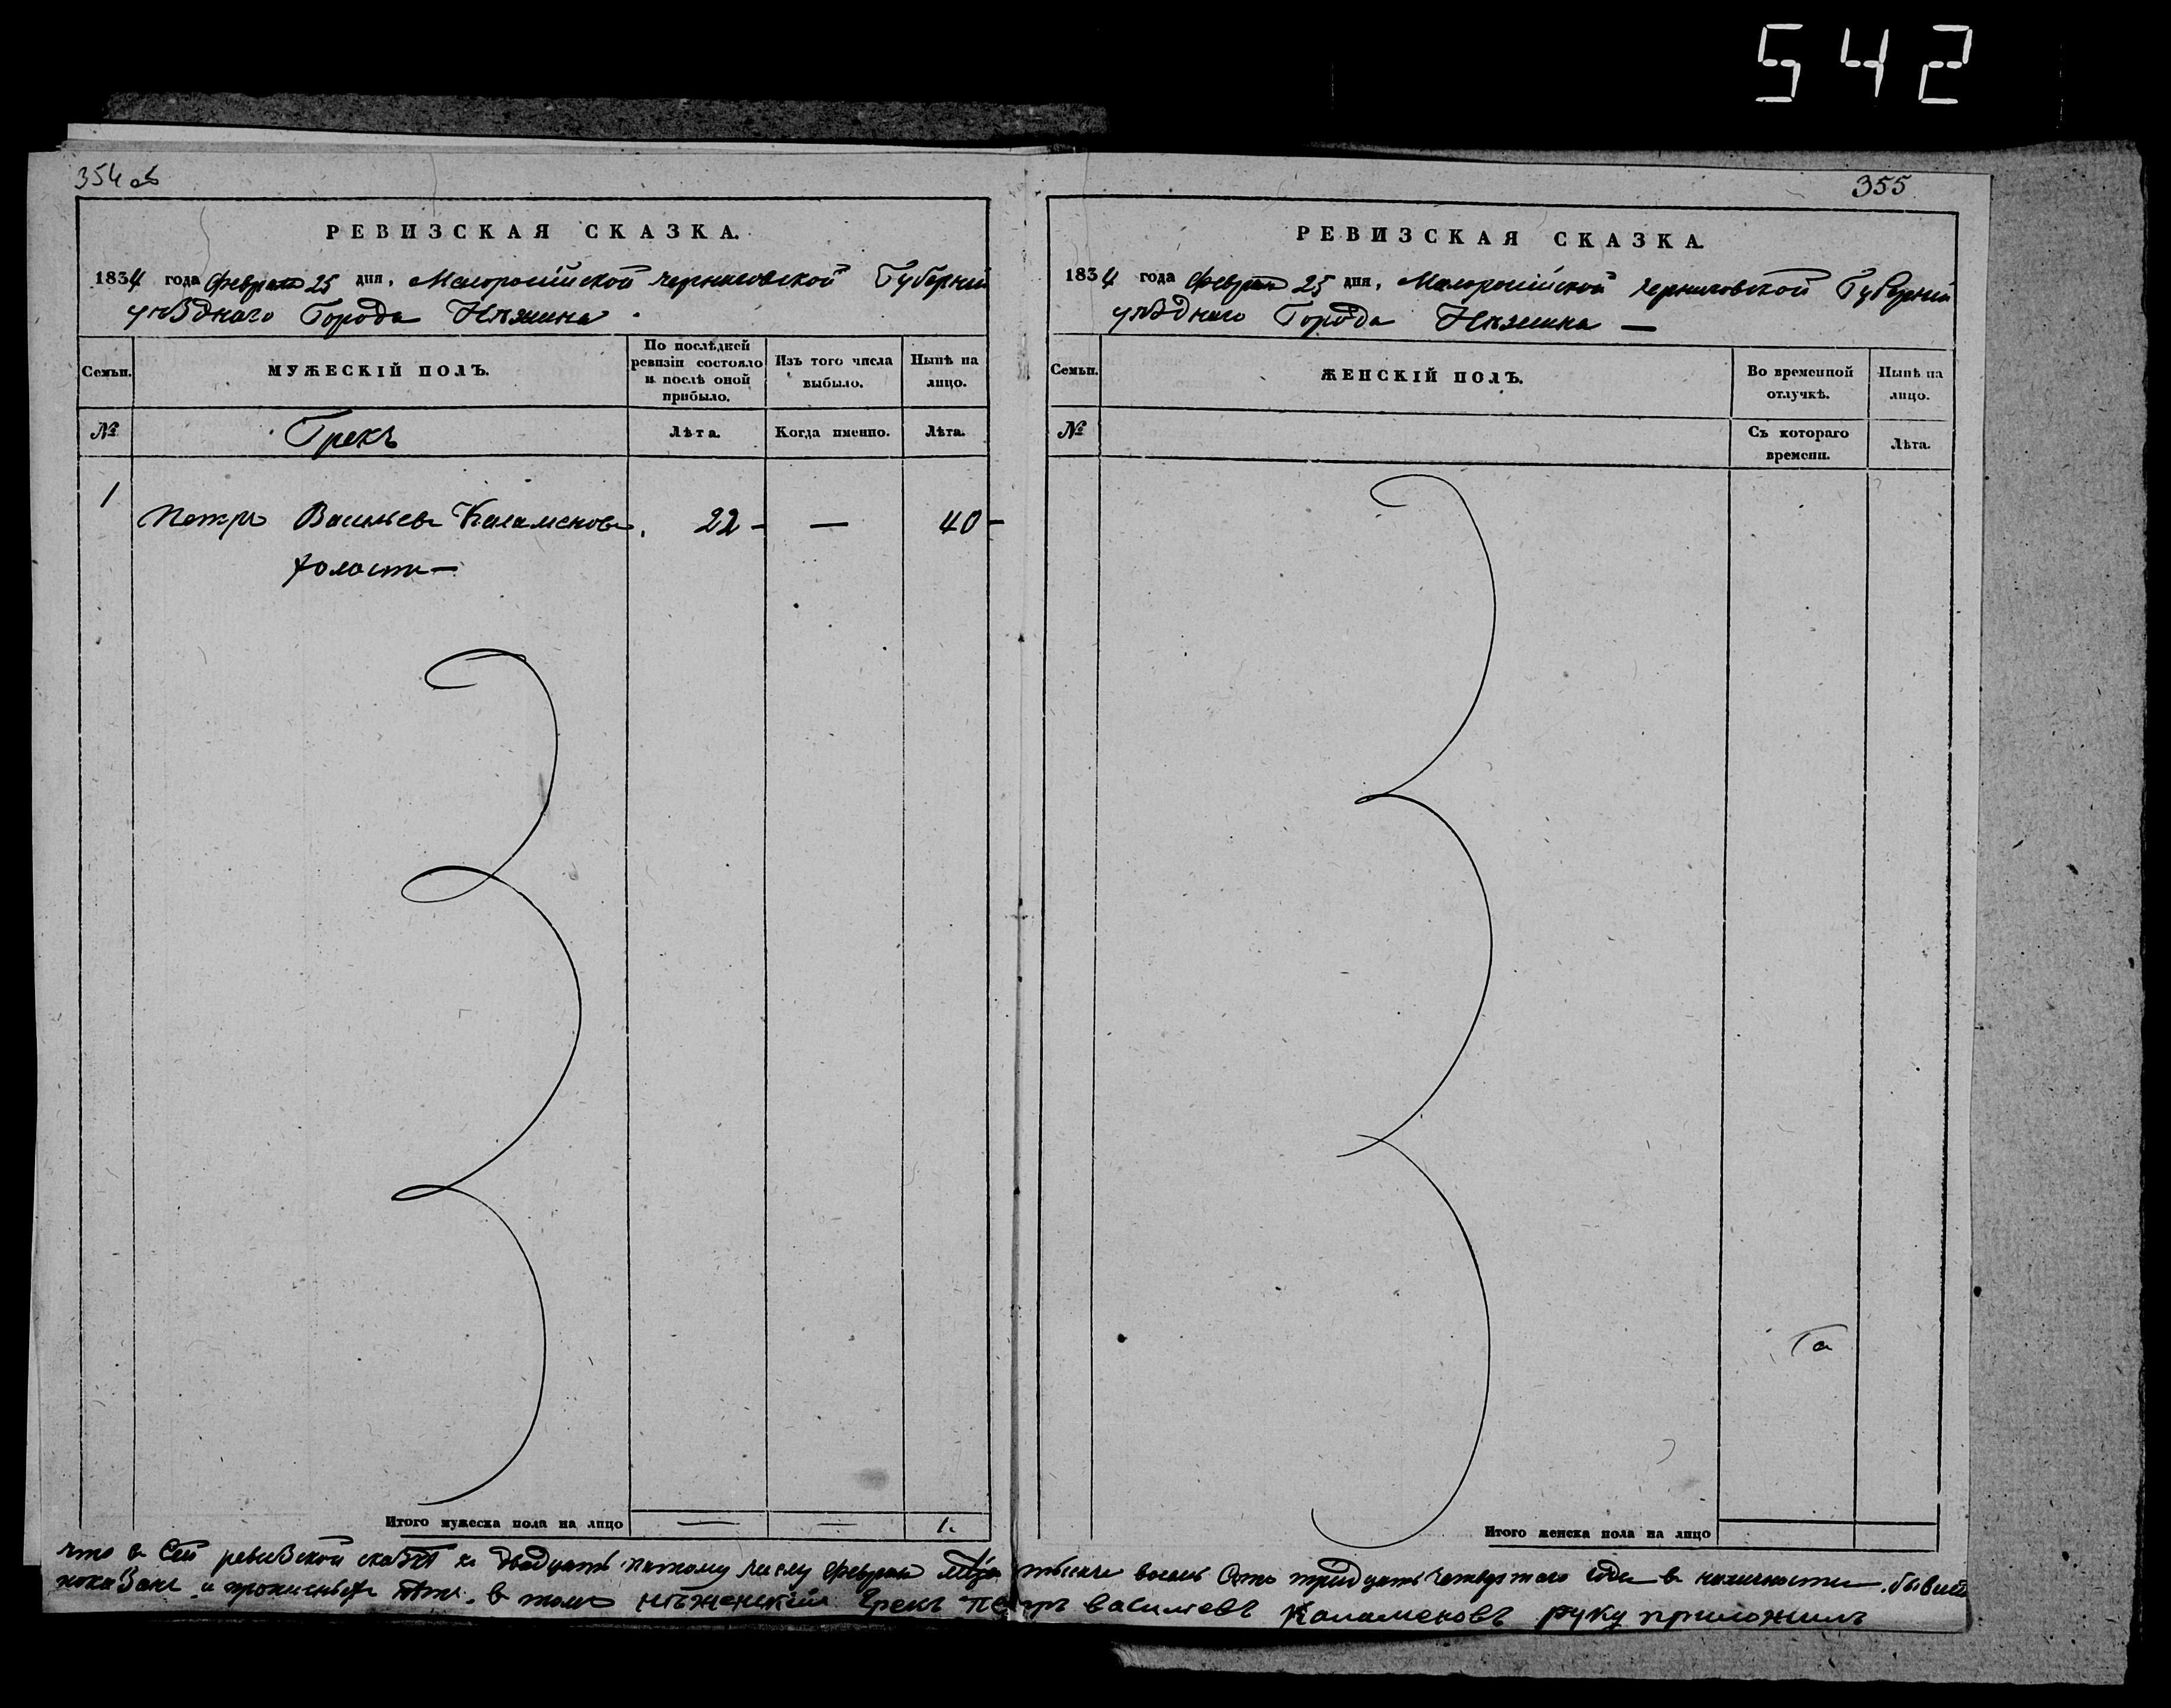 542
354 об
РЕВИЗСКАЯ СКАЗКА.
1834 года февраля 25 дня, Малоросійской Черниговской Губерніи
уѣзднаго Города Нѣжина
Семьи.
МУЖЕСКІЙ ПОЛЪ.
По послѣдней ревизіи состояло и послѣ оной прибыло.
Изъ того числа выбыло.
Нынѣ на лицо.
№
Грекъ
Лѣта.
Когда именно.
Лѣта.
1
Петръ Васильевъ Каламеновъ. 22 — — 40 —
холостъ —
Итого мужеска пола на лицо — — 1.
355
РЕВИЗСКАЯ СКАЗКА.
1834 года февраля 25 дня, Малоросійской Черниговской Губерніи
уѣзднаго Города Нѣжина —
Семьи.
ЖЕНСКІЙ ПОЛЪ.
Во временной отлучкѣ.
Нынѣ на лицо.
№
Съ котораго времени.
Лѣта.
Итого женска пола на лицо
что в Сей ревизской сказкѣ к двадцать пятому числу февраля тысяча восемь Сотъ тридцать четвертаго года в наличности бывшіе
показани и в томъ нѣженскій Грекъ Петръ василіевъ Каламеновъ руку приложилъ